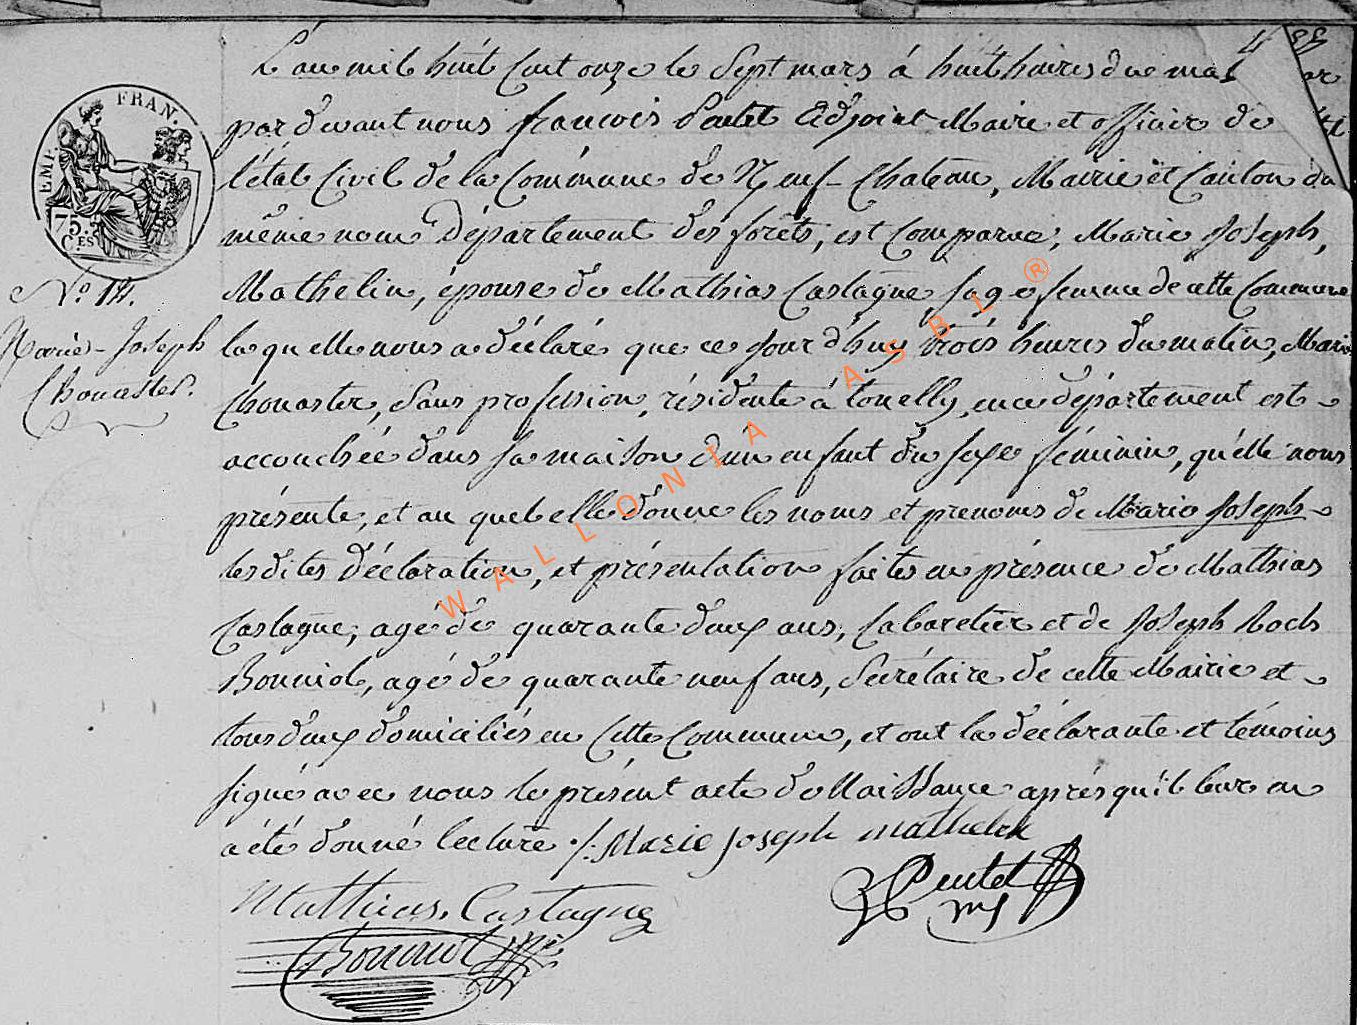 L'an mil huit cent onze le Sept mars à huit heures du mat
par devant nous françois Pentet Adjoint Maire et officier de
l'état Civil de la Commune de Neuf-Chateau, Mairie et Canton du
même nom Département des forêts, est Comparue, Marie Joseph,
Mathelin, épouse de Mathias Castagne sage femme de cette Commune
laquelle nous a déclaré que ce jour d'huy trois heures du matin, Marie
Chonaster, Sans profession, résidente à tonelly, en ce département est
accouchée dans sa maison d'un enfant du sexe féminin, qu'elle nous
présente, et au quel elle donne les noms et prenoms de Marie Joseph
les dites déclaration, et présentation faites en présence de Mathias
Castagne, agé de quarante deux ans, Cabaretier et de Joseph Roch
Bonniol, agé de quarante neuf ans, Secrétaire de cette Mairie et
tous deux domiciliés en Cette Commune, et ont la déclarante et témoins
signé avec nous le présent acte de Naissance après qu'il leur en
a été donné lecture ./. Marie Joseph Mathelin
Mathias Castagne
Pentet
Bonniol
N.° 12.
Marie-Joseph
Chonaster.
EMP. FRAN.
75.
C.ES
WALLONIA ASBL ®